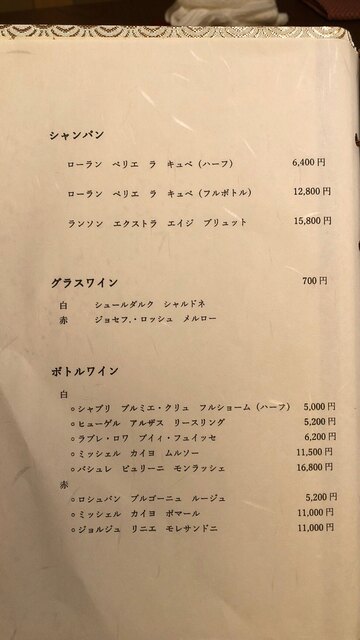 シャンパン
ローラン ペリエ ラ キュベ（ハーフ） 6,400円
ローラン ペリエ ラ キュベ（フルボトル） 12,800円
ランソン エクストラ エイジ ブリュット 15,800円
グラスワイン 700円
白 シュールダルク シャルドネ
赤 ジョセフ.・ロッシュ メルロー
ボトルワイン
白
○シャブリ プルミエ・クリュ フルショーム（ハーフ） 5,000円
○ヒューゲル アルザス リースリング 5,200円
○ラブレ・ロワ プイィ・フュイッセ 6,200円
○ミッシェル カイヨ ムルソー 11,500円
○バシュレ ピュリーニ モンラッシェ 16,800円
赤
○ロシュバン ブルゴーニュ ルージュ 5,200円
○ミッシェル カイヨ ポマール 11,000円
○ジョルジュ リニエ モレサンドニ 11,000円